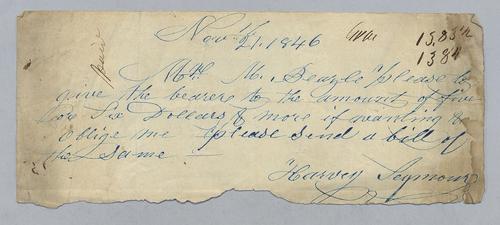 Nov 21, 1846
15,83
1384
paid
M. Searle please to
give the bearer to the amount of five
or Six Dollars & more if wanting &
Oblige me please send a bill of
the same
Harvey Seymour